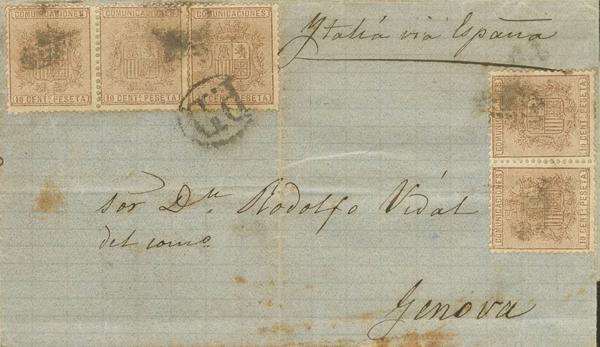 COMUNICACIONES COMUNICACIONES COMUNICACIONES
10 CENT: PESETA 10 CENT: PESETA 10 CENT: PESETA
Italia via España
P.D.
COMUNICACIONES
10 CENT: PESETA
COMUNICACIONES
10 CENT: PESETA
Sor Dn Rodolfo Vidal
del como
Genova